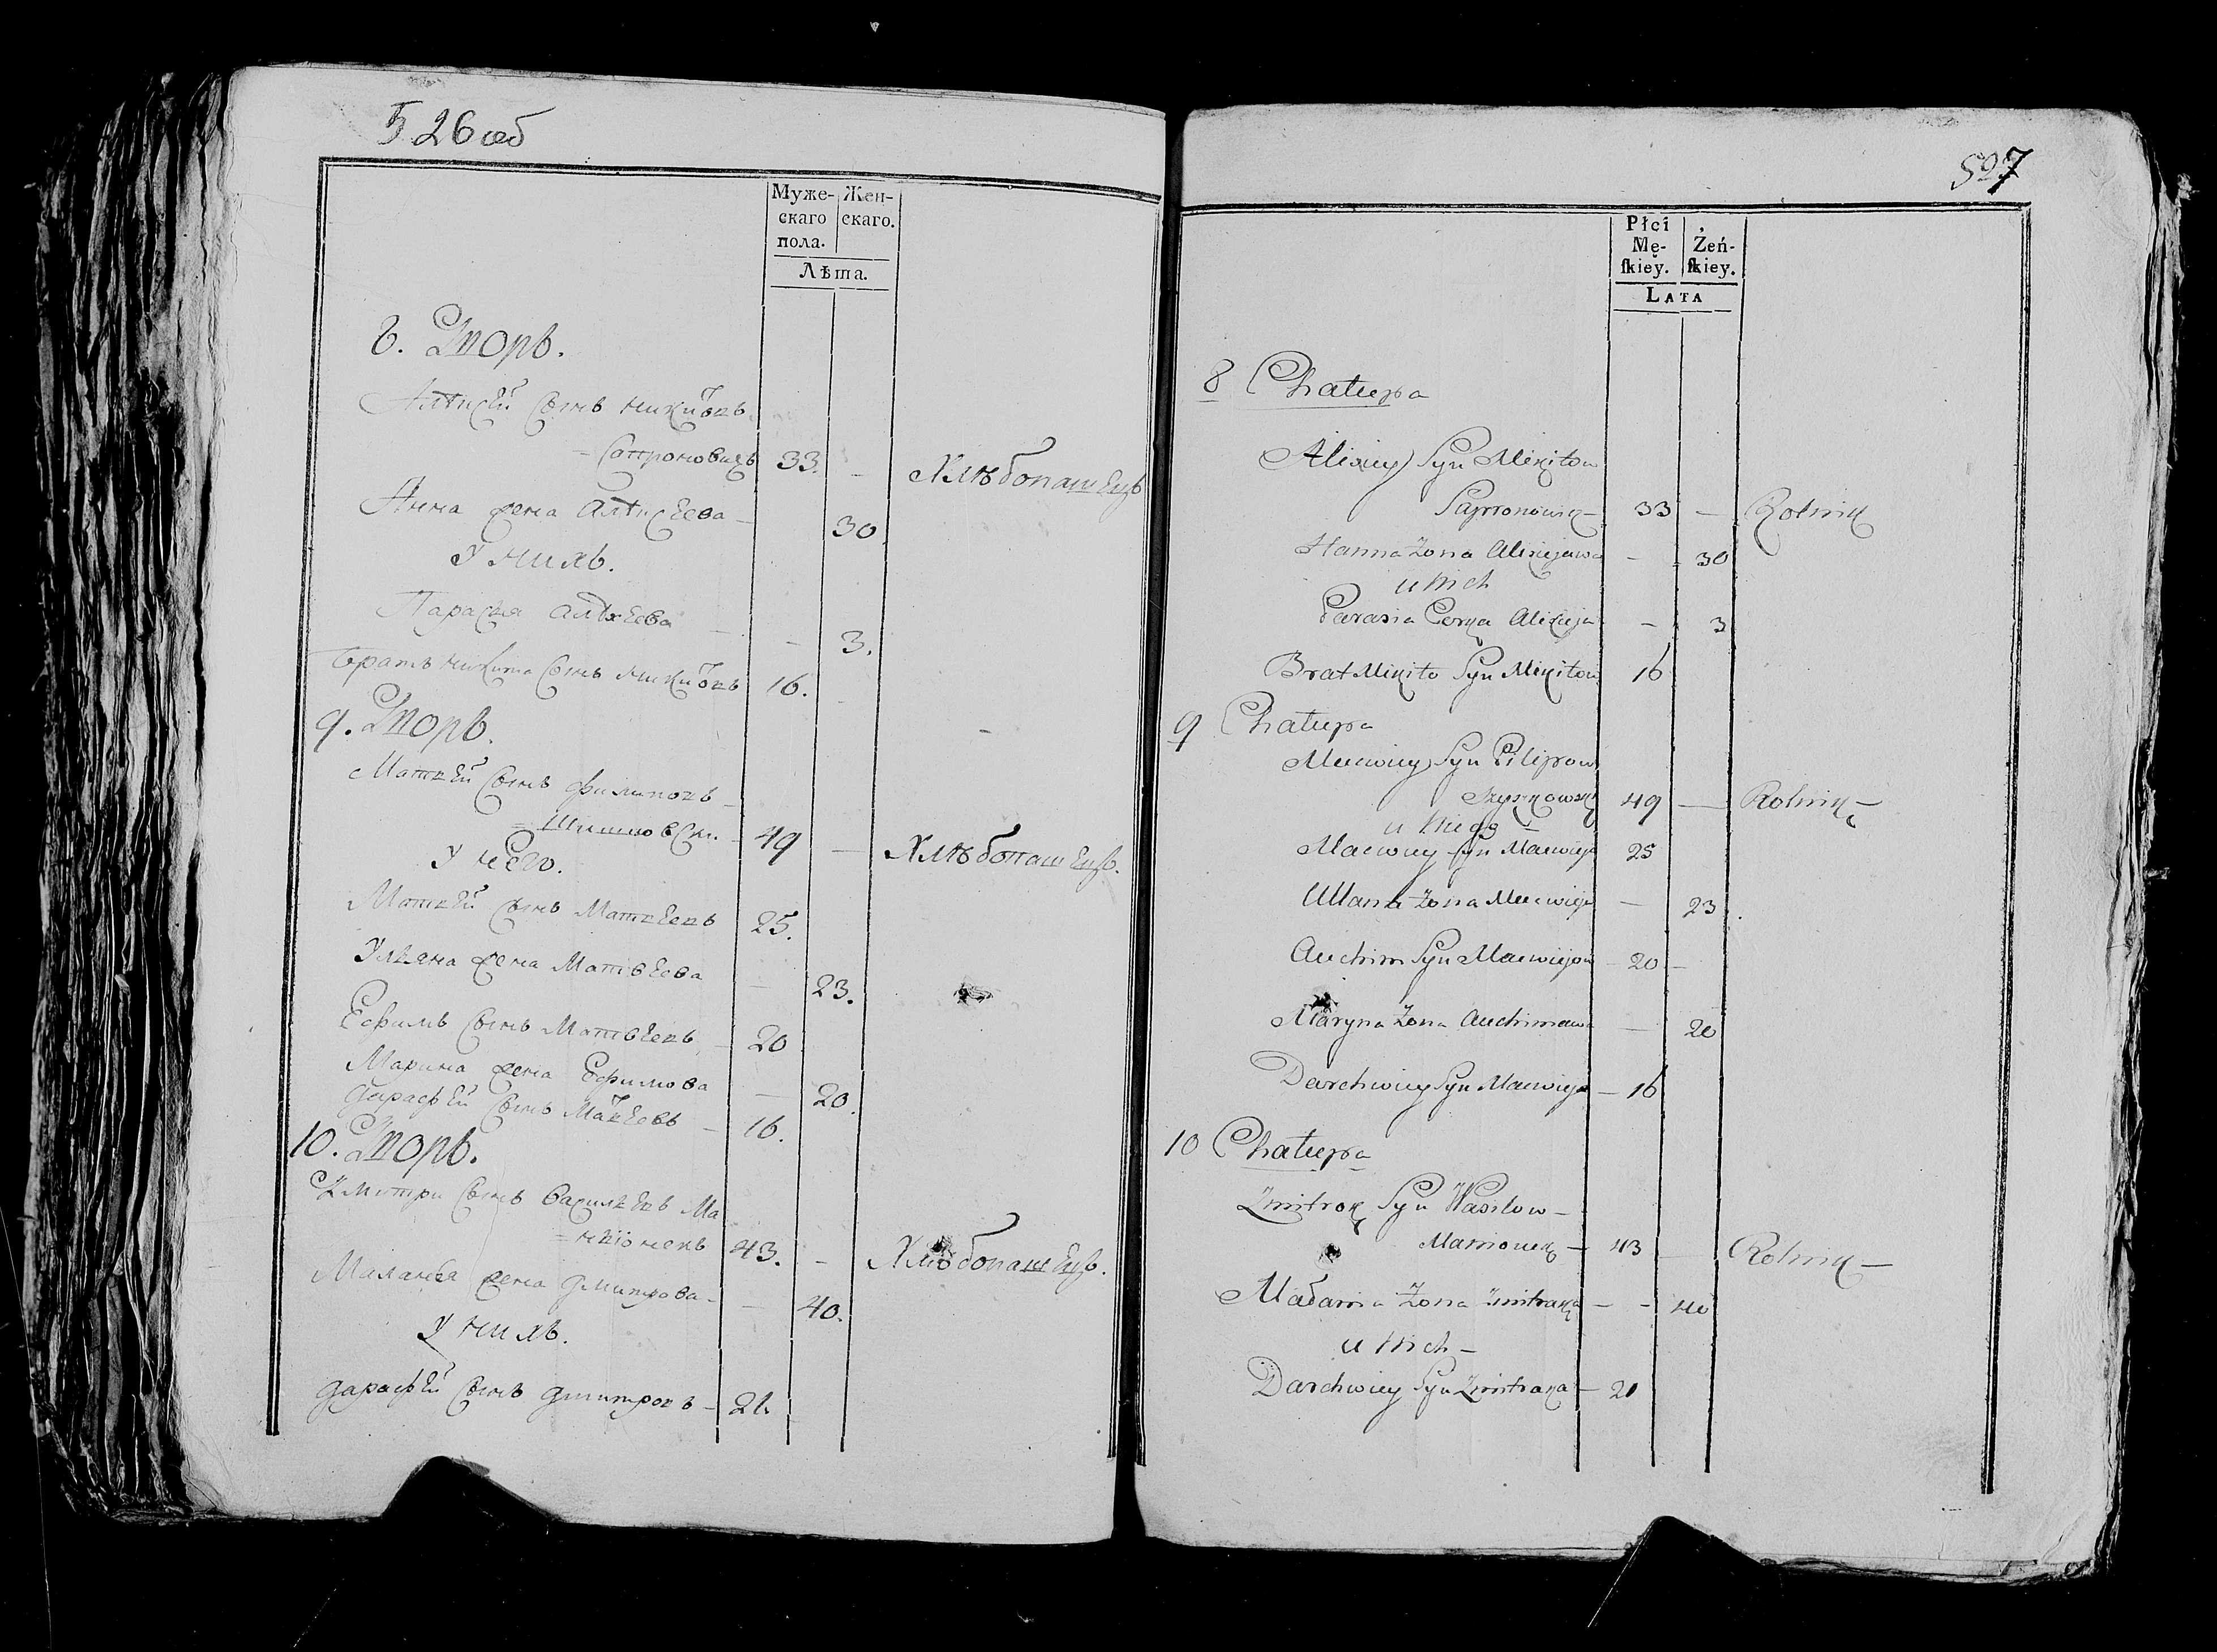 526 об
Муже- Жен-
скаго скаго.
пола.
Лѣта.
8. Дворъ.
Алѣксѣй сынъ Никитовъ
Сапроновичъ 33. - Хлѣбопашецъ
Анна жена Алѣксѣева - 30
У нихъ.
Парасья Алѣксѣева - - 3.
Братъ Никита сынъ Никитовъ 16.
9. Дворъ.
Матвѣй сынъ Филиповъ -
= Шишковски - 49 - Хлѣбопашецъ.
У него.
Матвѣй сынъ Матвѣевъ 25.
Ульяна жена Матвѣева - 23.
Ефимъ сынъ Матвѣевъ - 20
Марина жена Ефимова - 20.
Дарафѣй сынъ Матвѣевъ - 16.
10. Дворъ.
Дмитри сынъ Васильевъ Ма
= 43. - Хлѣбопашецъ.
Маланья жена Дмитрова - - 40.
У нихъ.
Дарафѣй сынъ Дмитровъ - 21.
527
Płci
Mę- Żeń-
ſkiey. ſkiey.
LATA
8 Chałupa
Alixiey Syn Mikitow
Sapronowicz - 33 - Rolnik
Hanna Zona Alixiejowa - 30
u Nich
Parasia Corka Alixieja - 3
Brat Mikito Syn Mikitow 16
9 Chałupa
Maciwiey Syn Pilipow
Szyszkowski 49 - Rolnik -
u Niego -
Maciwiey Syn Maciwieja 25
Ullana Zona Maciwieja - 23.
Auchim Syn Maciwiejow - 20 -
Maryna Zona Auchimowa - 20
Darchwiey Syn Maciwieja - 16
10 Chałupa
Zmitrok Syn Wasilow -
- 43 - Rolnik -
Zona Zmitraka - - 40
u Nich -
Darchwiey Syn Zmitraka - 21